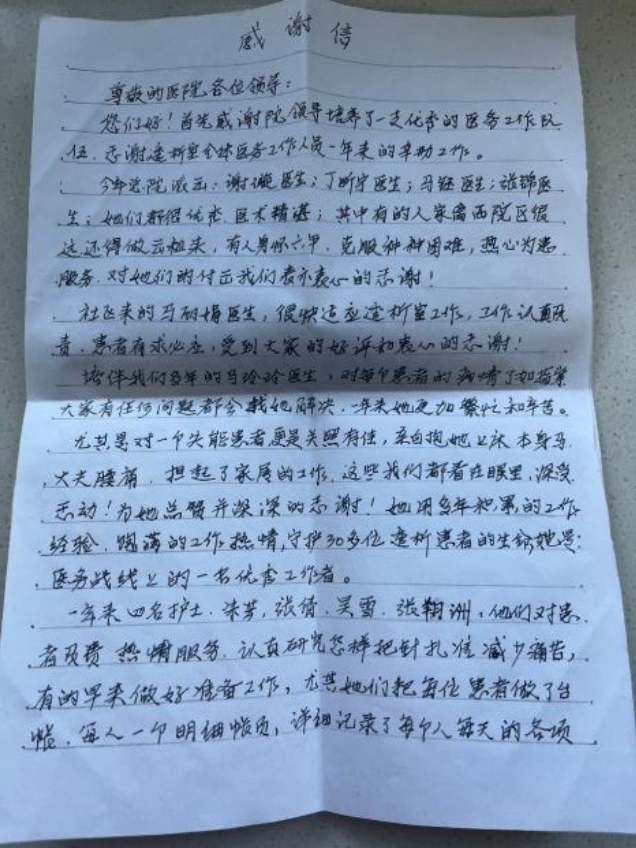 感谢信
尊敬的医院各位领导：
您们好！首先感谢院领导培养了一支优秀的医务工作队
伍．感谢透析室全体医务工作人员一年来的辛勤工作。
今年总院派去：谢 医生；丁 医生；马 医生；张锦医
生；她们都很优秀．医术精湛；其中有的人家离西院区很
远．还得做去租来，有人身怀六甲．克服种种困难，热心为患
服务．对她们的付出我们表示衷心的感谢！
社区来的马丽娟医生，很快适应透析室工作，工作认真负
责．患者有求必应，受到大家的好评和衷心的感谢！
陪伴我们多年的马玲玲医生，对每个患者的病情了如指掌
大家有任何问题都会找她解决．一年来她更加繁忙和辛苦。
尤其是对一个失能患者更是关照有佳，亲自抱她上床本身马
大夫腰痛．担起了家属的工作．这些我们都看在眼里，深受
感动！为她点赞并深深的感谢！她用多年积累的工作
经验．饱满的工作热情，守护30多位透析患者的生命她是：
医务战线上的一名优秀工作者。
一年来四名护士．朱芳，张倩．吴雪．张翔洲，他们对患
者负责 热情服务．认真研究怎样把针扎准减少痛苦，
有的早来做好准备工作，尤其她们把每位患者做了台
帐．每人一个明细帐页，详细记录了每个人每天的各项